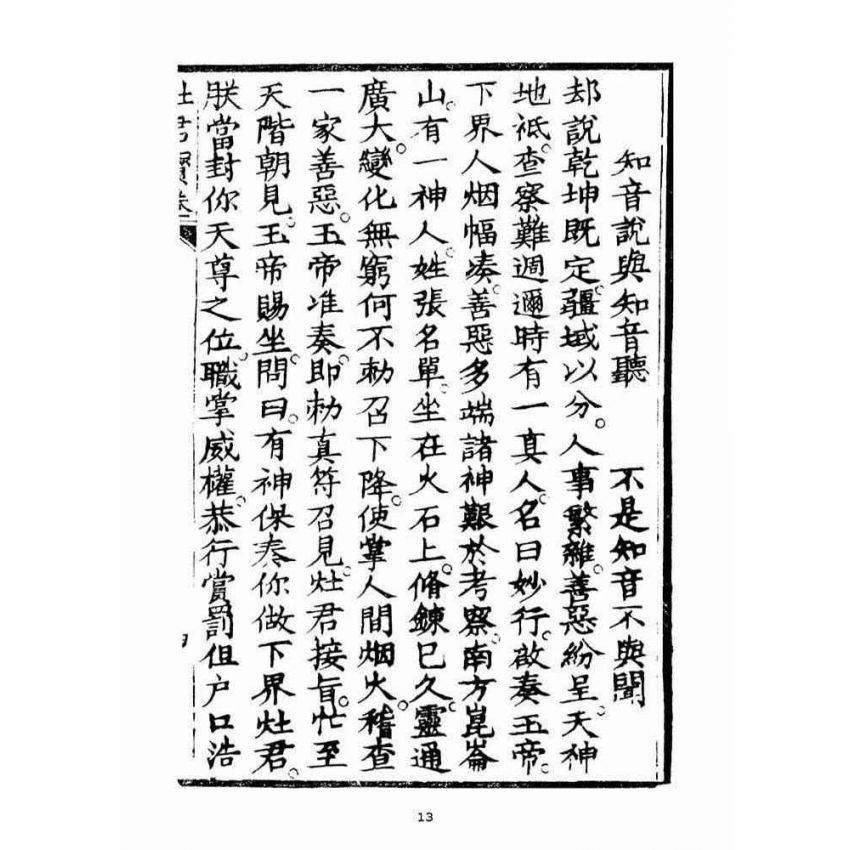 知音說與知音聽　不是知音不與聞
却說乾坤既定。疆域以分。人事繁雜。善惡紛呈。天神
地祗。查察難週。邇時有一真人。名曰妙行。啟奏玉帝。
下界人烟幅凑。善惡多端諸神艱於考察。南方崑崙
山。有一神人。姓張名單。坐在火石上。脩鍊已久。靈通
廣大。變化無窮何不勅召下降。使掌人間烟火。稽查
一家善惡。玉帝准奏。即勅真符召見。灶君接旨。忙至
天階朝見。玉帝賜坐。問曰。有神保奏你做下界灶君。
朕當封你天尊之位。職掌威權。恭行賞罰但户口浩
灶君寳卷
13